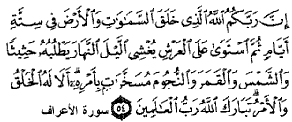 إِنَّ رَبَّكُمُ ٱللَّهُ ٱلَّذِى خَلَقَ ٱلسَّمَٰوَٰتِ وَٱلْأَرْضَ فِى سِتَّةِ
أَيَّامٍ ثُمَّ ٱسْتَوَىٰ عَلَى ٱلْعَرْشِ يُغْشِى ٱلَّيْلَ ٱلنَّهَارَ يَطْلُبُهُۥ حَثِيثًا
وَٱلشَّمْسَ وَٱلْقَمَرَ وَٱلنُّجُومَ مُسَخَّرَٰتٍۭ بِأَمْرِهِۦٓ أَلَا لَهُ ٱلْخَلْقُ
وَٱلْأَمْرُ تَبَارَكَ ٱللَّهُ رَبُّ ٱلْعَٰلَمِينَ ٥٤ سورة الأعراف